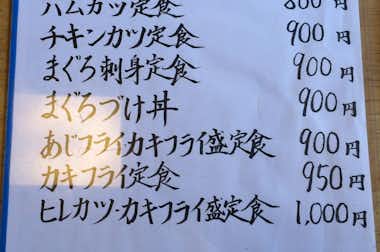 ハムカツ定食 800円
チキンカツ定食 900円
まぐろ刺身定食 900円
まぐろづけ丼 900円
あじフライカキフライ盛定食 900円
カキフライ定食 950円
ヒレカツ-カキフライ盛定食 1,000円